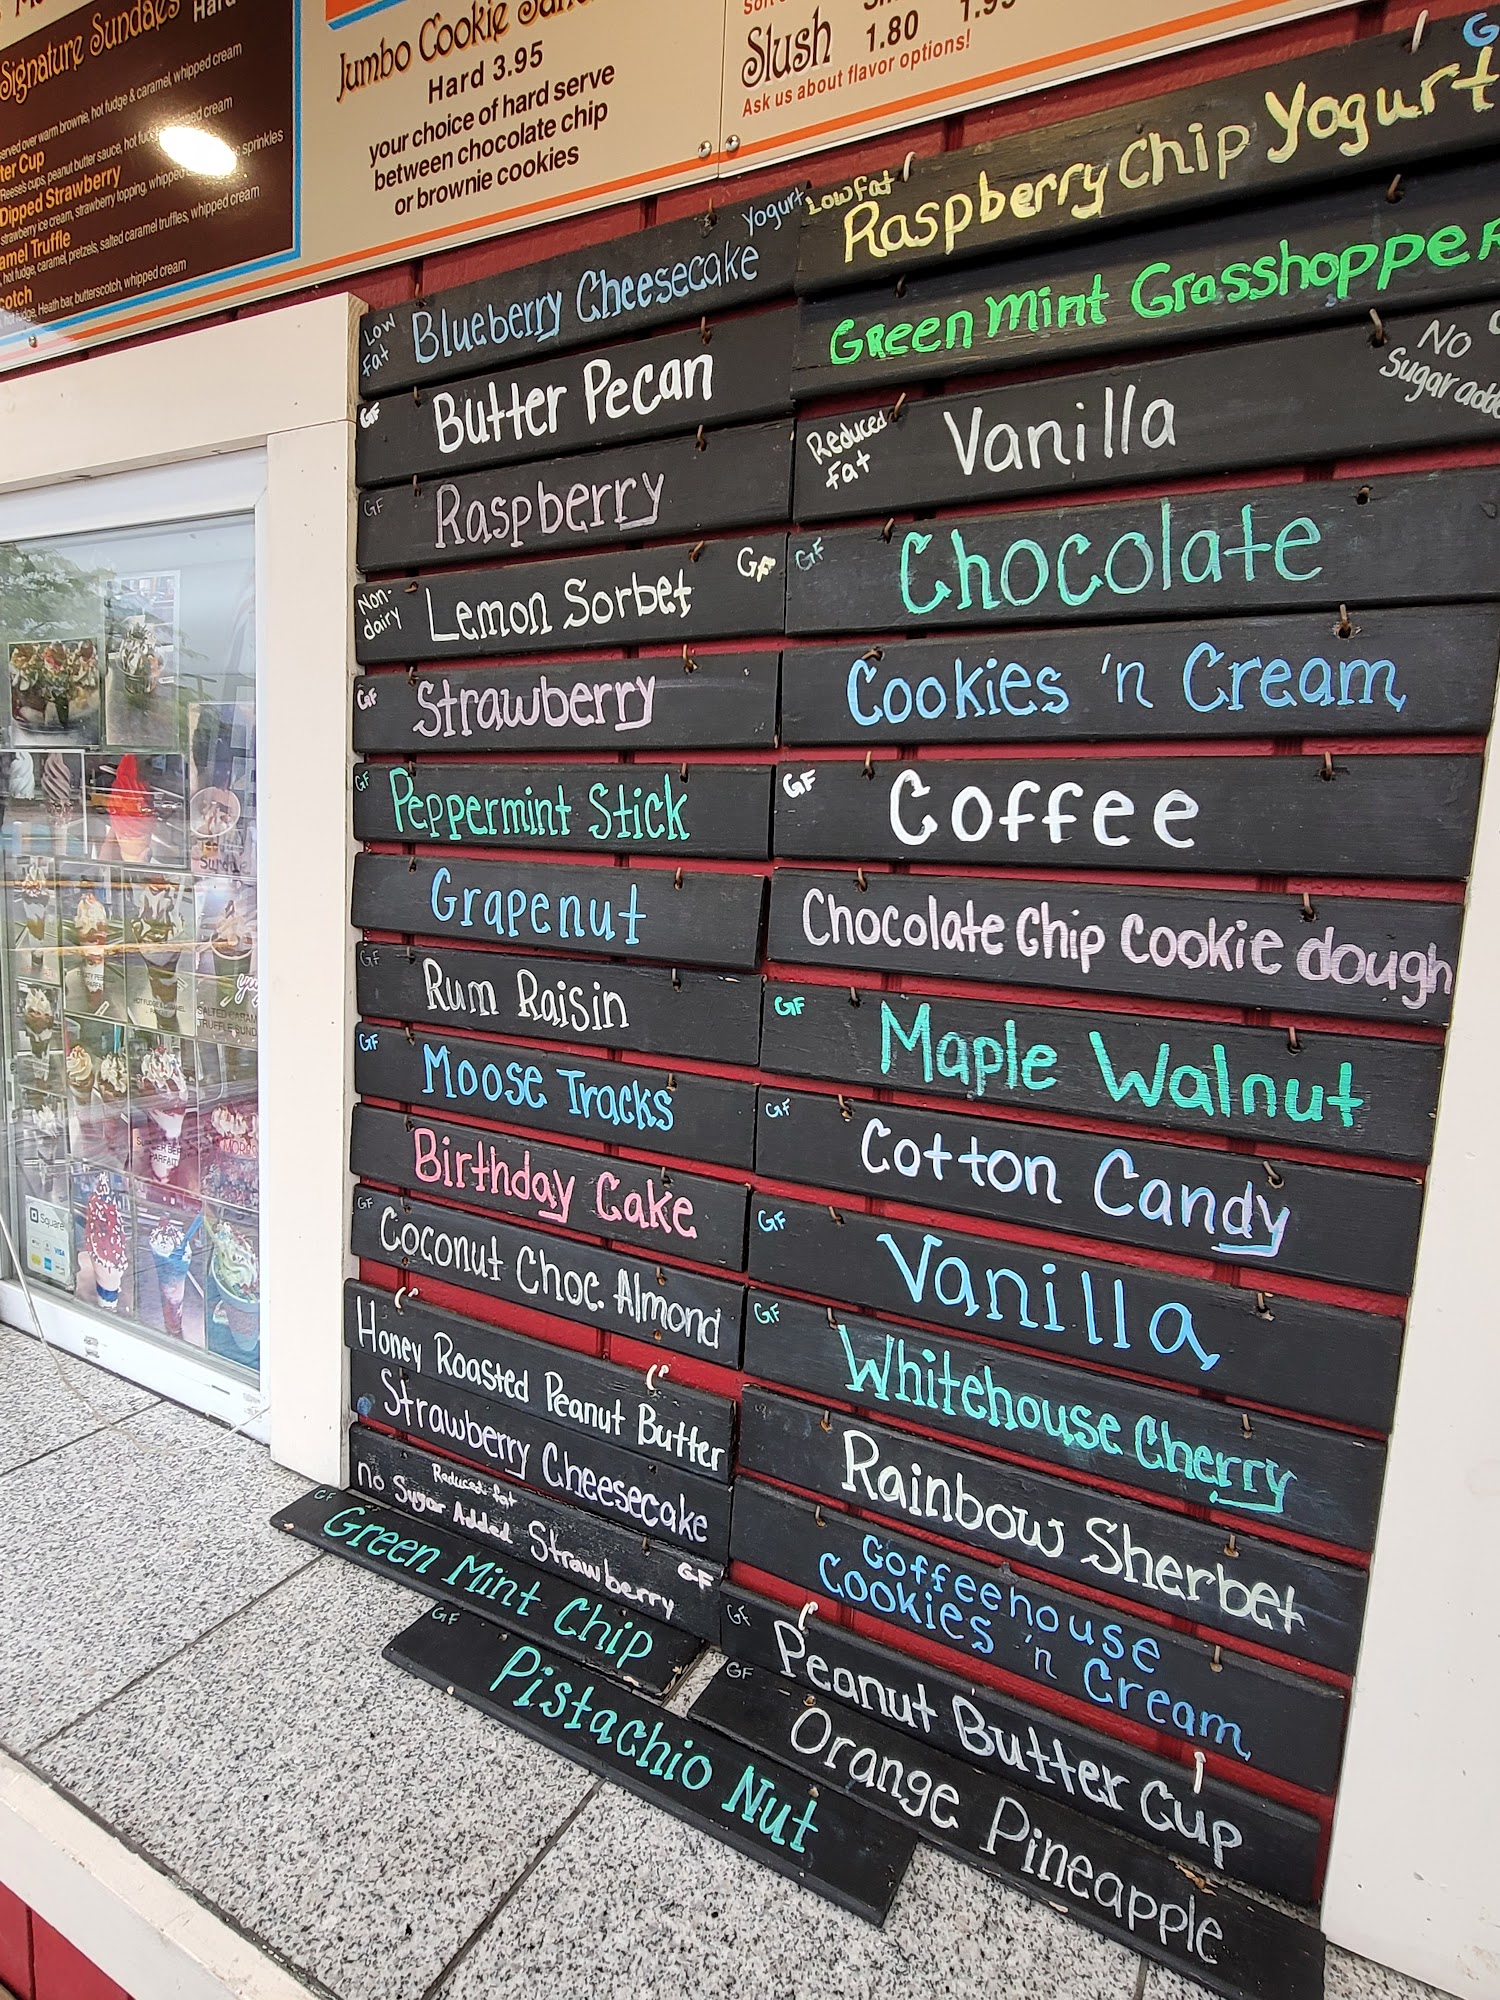 Signature Sundaes
Hard
served over warm brownie, hot fudge & caramel, whipped cream
ter Cup
Reese's cups, peanut butter sauce, hot cream
Dipped Strawberry
strawberry ice cream, strawberry topping, whipped sprinkles
amel Truffle
hot fudge, caramel, pretzels, salted caramel truffles, whipped cream
cotch
hot fudge, Heath bar, butterscotch, whipped cream
Jumbo Cookie
Hard 3.95
your choice of hard serve
between chocolate chip
or brownie cookies
Slush 1.80
Ask us about flavor options!
Low Fat Blueberry Cheesecake Yogurt
GF Butter Pecan
GF Raspberry
Non-dairy Lemon Sorbet GF
GF Strawberry
GF Peppermint Stick
Grapenut
GF Rum Raisin
GF Moose Tracks
Birthday Cake
GF Coconut Choc. Almond
Honey Roasted Peanut Butter
Strawberry Cheesecake
Reduced fat
No Sugar Added Strawberry GF
GF Green Mint Chip
GF Pistachio Nut
Low Fat Raspberry Chip Yogurt G
Green Mint Grasshopper
Reduced Fat Vanilla No Sugar adde
GF Chocolate
Cookies 'n Cream
GF Coffee
Chocolate Chip Cookie dough
GF Maple Walnut
GF Cotton Candy
GF Vanilla
GF Whitehouse Cherry
Rainbow Sherbet
Coffeehouse
Cookies 'n Cream
GF Peanut Butter Cup
GF Orange Pineapple
Square
VISA
SALTED CARAM
TRUFFLE SUND